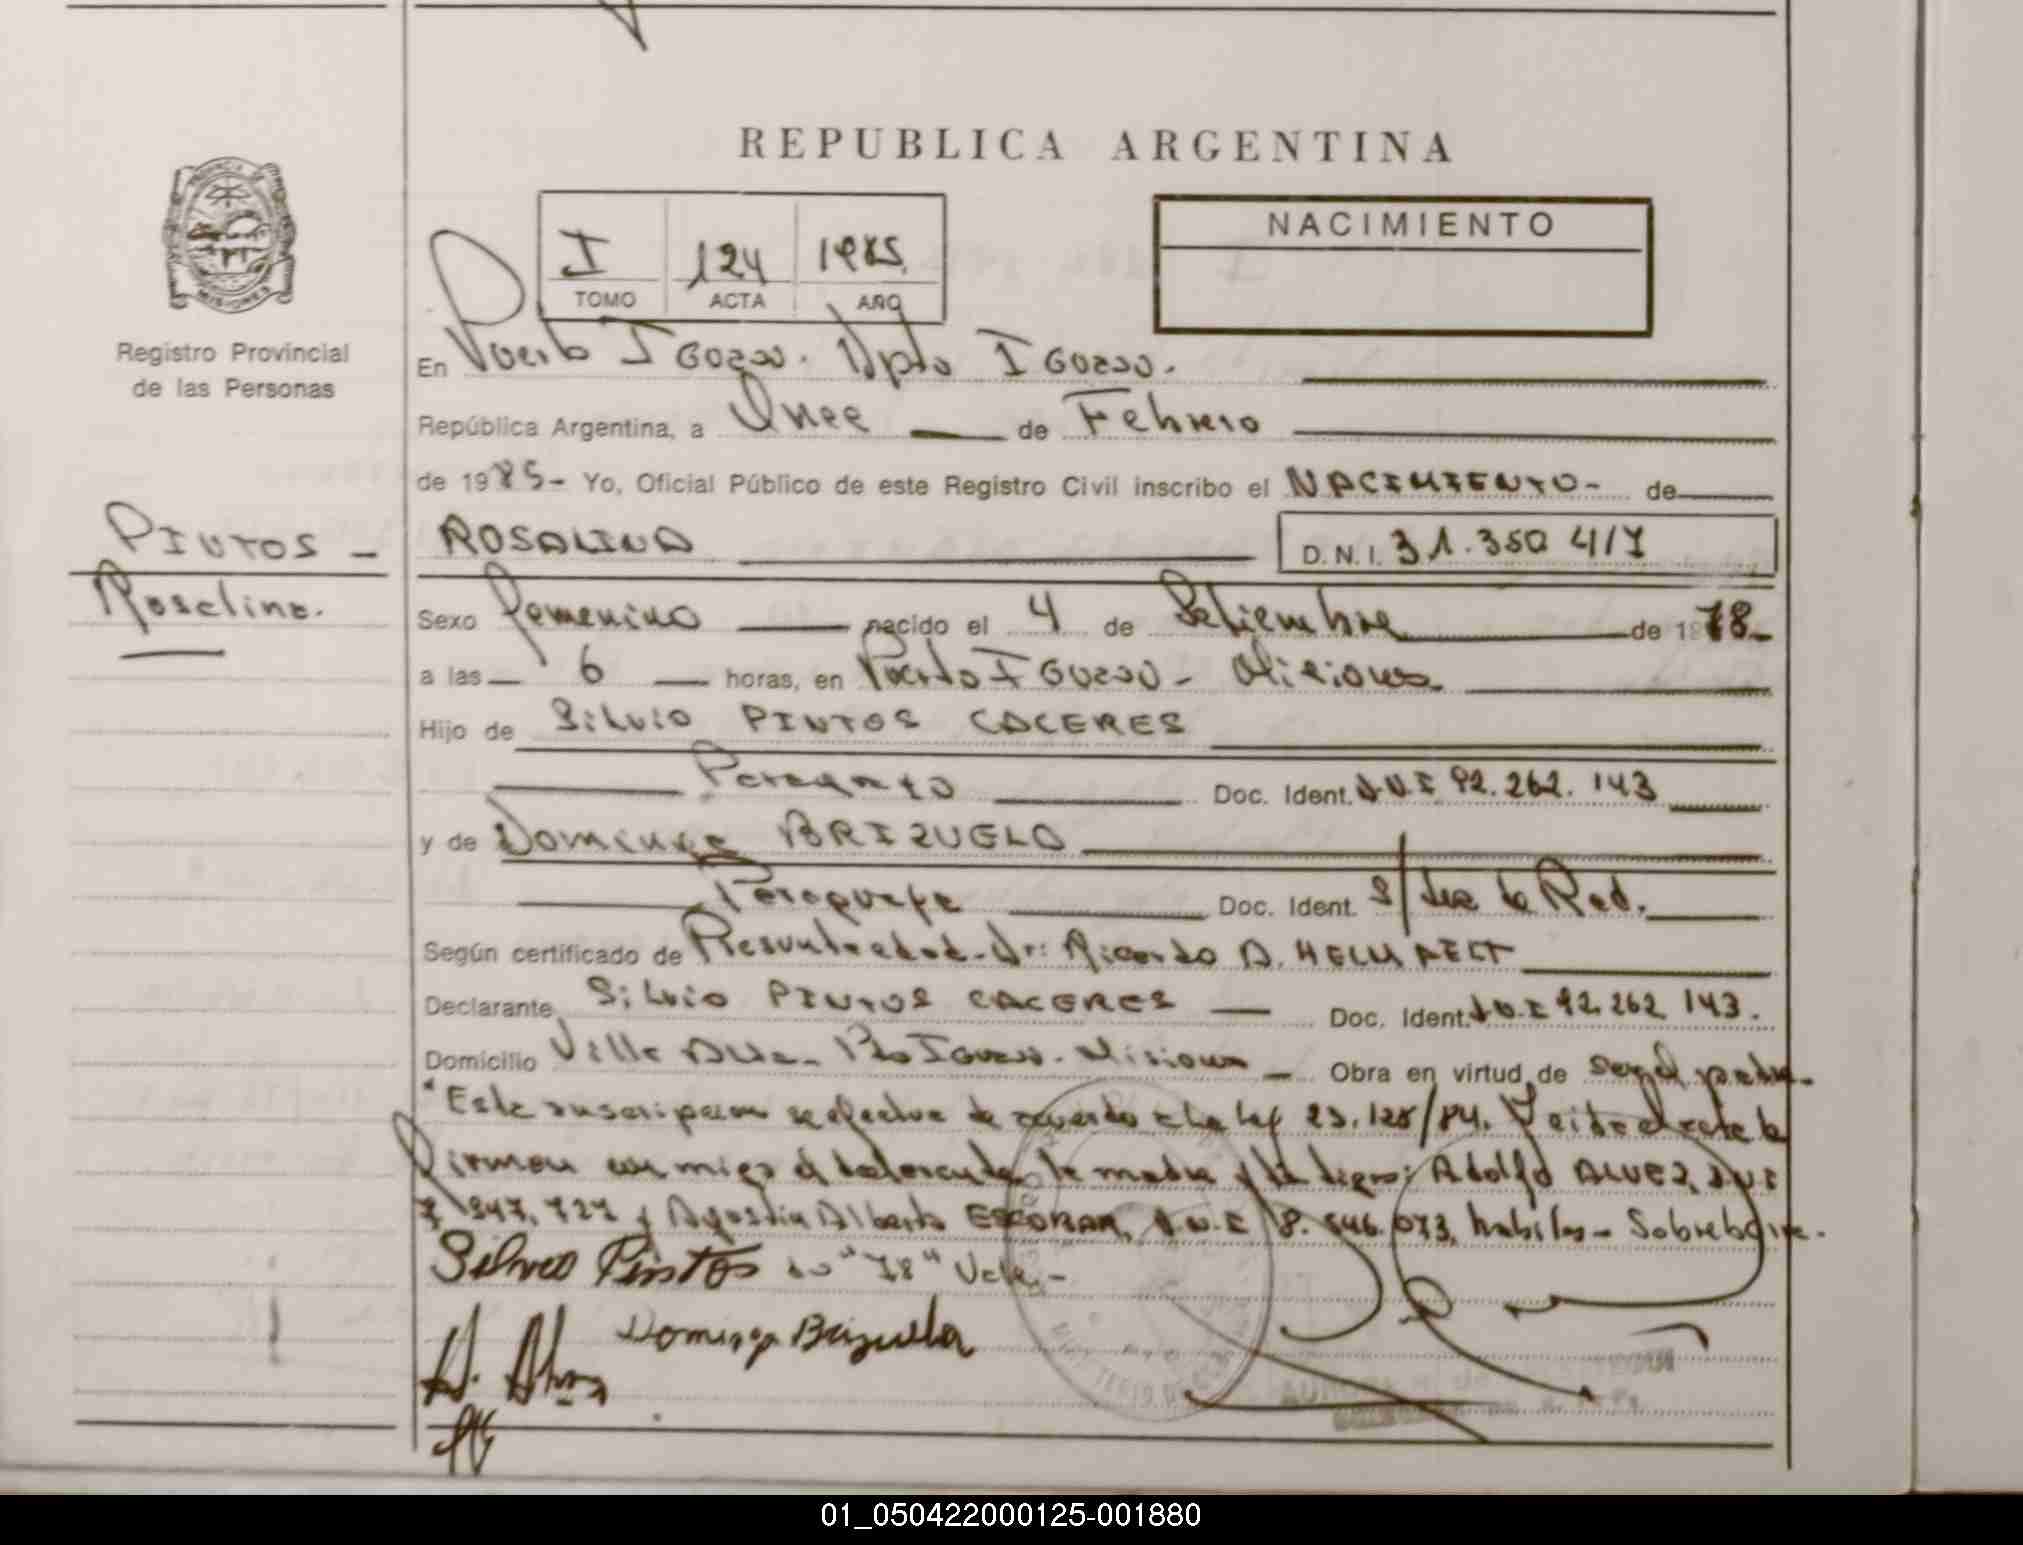 REPUBLICA ARGENTINA
PROVINCIA DE
MISIONES
Registro Provincial
de las Personas
I 124 1985
TOMO ACTA AÑO
NACIMIENTO
En Puerto Iguazu. Dpto Iguazu.
República Argentina, a Once de Febrero
de 1985- Yo, Oficial Público de este Registro Civil inscribo el NACIMIENTO- de
PINTOS -
Rosalina.
ROSALINA D.N.I. 31.350 417
Sexo Femenino nacido el 4 de Setiembre de 1978-
a las 6 horas, en Puerto Iguazu - Misiones
Hijo de Silvio PINTOS CACERES
Paraguayo Doc. Ident. D.N.I 92.262.143
y de Dominga BRIZUELA
Paraguaya Doc. Ident. S/ Red.
Según certificado de Dr: Ricardo A.
Declarante Silvio PINTOS CACERES Doc. Ident. D.N.I 92.262 143.
Domicilio Villa Alta- Pto Iguazu- Misiones Obra en virtud de ser el padre-
"Esta inscripcion se efectua de acuerdo a la ley 23.128/84. Leida el acta la
firman conmigo el declarante, la madre y testigos: Adolfo ALVEZ, D.N.I
7.947.727 y Agustin Alberto ESCOBAR, D.N.I 8.546.073, habiles- Sobreborra-
Silvio Pintos do "78" Vale.-
Dominga Brizuela
A. Alvez
01_050422000125-001880